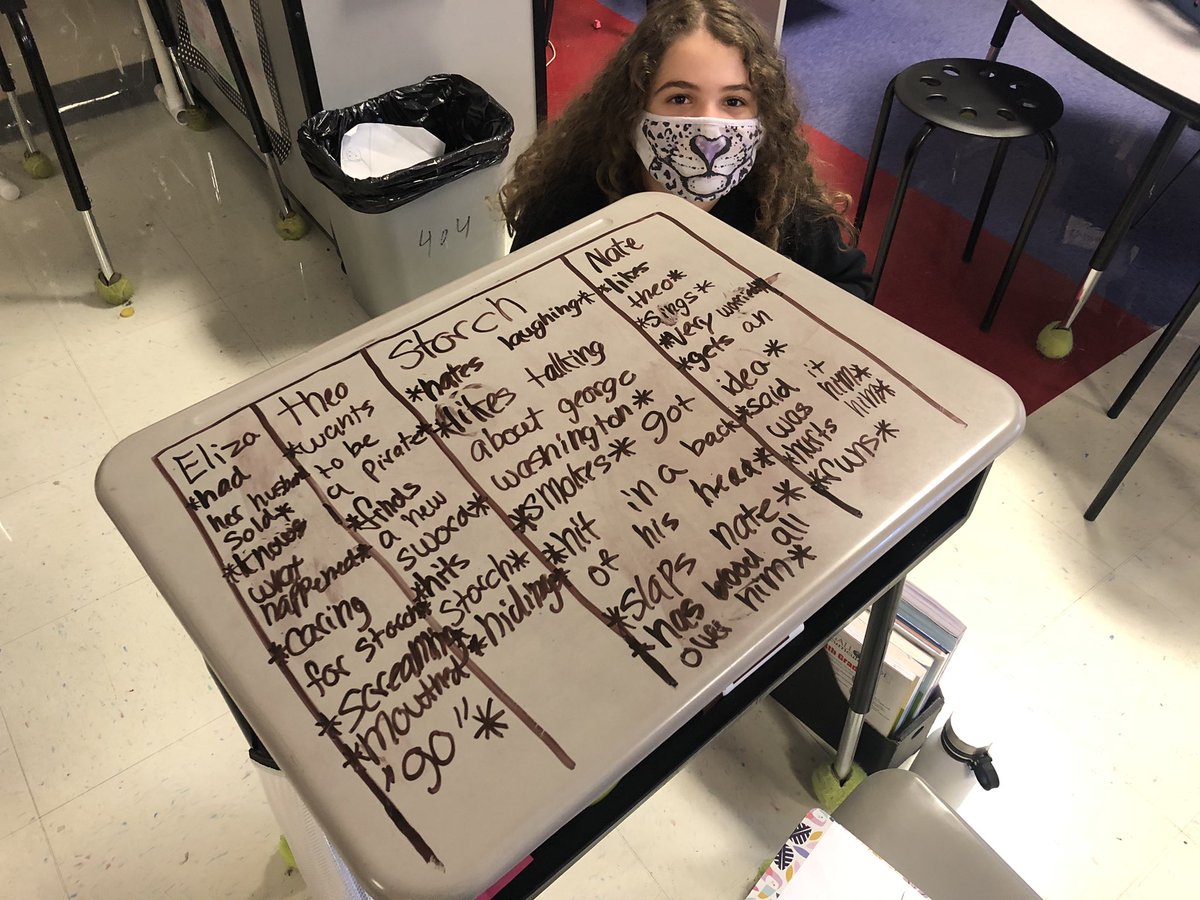 Eliza
*had
her
sold*
*knows
what
happened*
*caring
for storch*
*screaming*
*mouthed
"go"*
theo
*wants
to be
a pirate*
*finds
a new
sword*
*hits
storch*
*hiding*
Storch
*hates laughing*
*likes talking
about george
washington*
*smokes* got
*hit in a back
of his head*
*slaps nate*
*has blood all
over him*
Nate
*likes
theo*
*sings*
*very worried*
*gets an
idea*
*said it
was him*
*hurts him*
*runs*
404